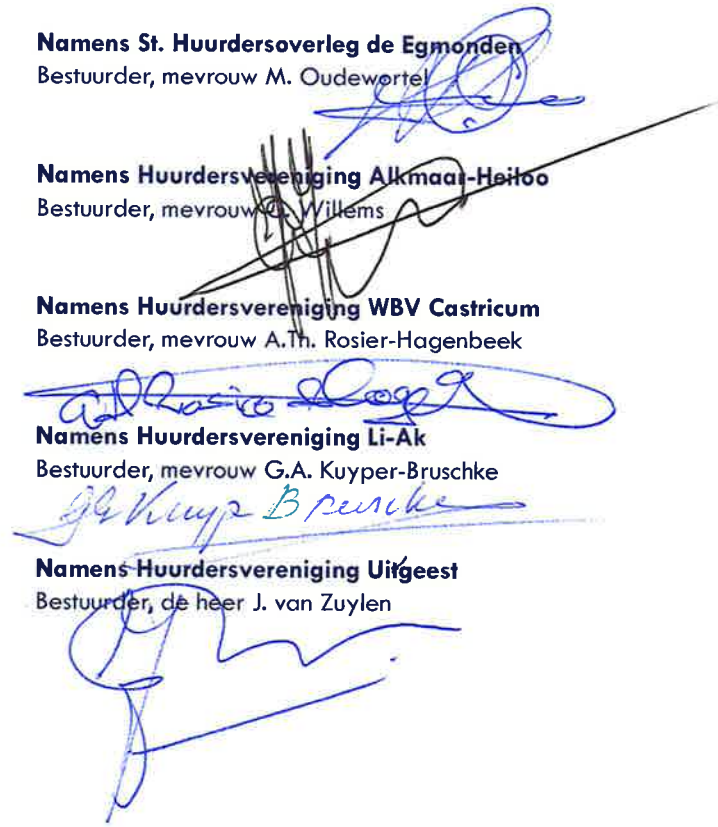 Namens St. Huurdersoverleg de Egmonden
Bestuurder, mevrouw M. Oudewortel
Namens Huurdersvereniging Alkmaar-Heiloo
Bestuurder, mevrouw Willems
Namens Huurdersvereniging WBV Castricum
Bestuurder, mevrouw A.Th. Rosier-Hagenbeek
Namens Huurdersvereniging Li-Ak
Bestuurder, mevrouw G.A. Kuyper-Bruschke
Namens Huurdersvereniging Uitgeest
Bestuurder, de heer J. van Zuylen